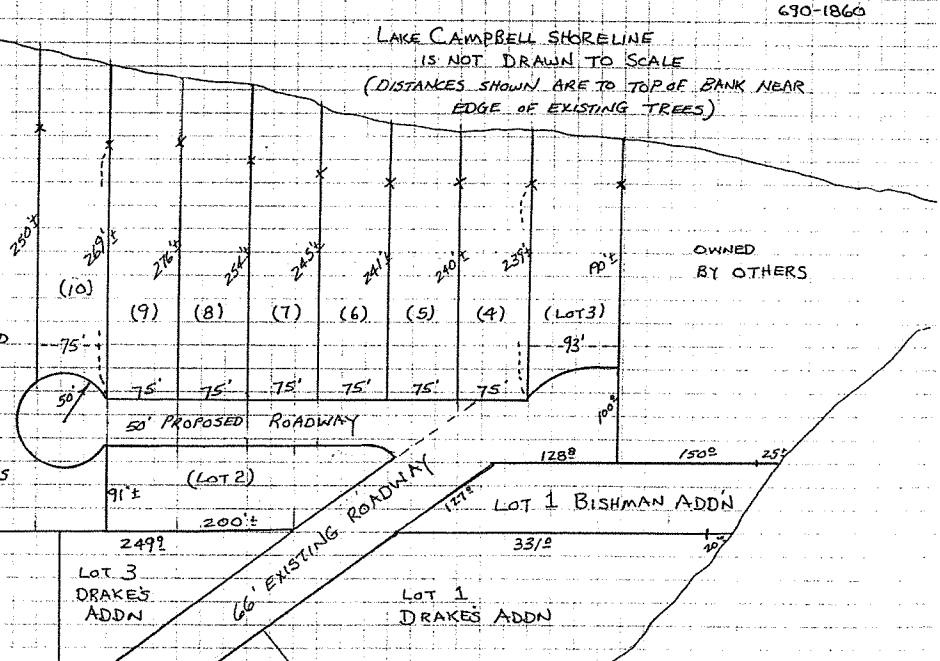 690-1860
LAKE CAMPBELL SHORELINE
IS NOT DRAWN TO SCALE
(DISTANCES SHOWN ARE TO TOP OF BANK NEAR
EDGE OF EXISTING TREES)
250'±
269'±
276'±
254'±
245'±
241'±
240'±
239'±
190'±
OWNED
BY OTHERS
(10)
(9)
(8)
(7)
(6)
(5)
(4)
(LOT 3)
75'
93'
50'
75'
75'
75'
75'
75'
75'
50' PROPOSED ROADWAY
100°
128⁸
150⁰
25±
S
91'±
(LOT 2)
200'±
127⁰
LOT 1 BISHMAN ADD'N
249⁹
66' EXISTING ROADWAY
331⁰
20±
LOT 3
DRAKE'S
ADDN
LOT 1
DRAKE'S ADDN